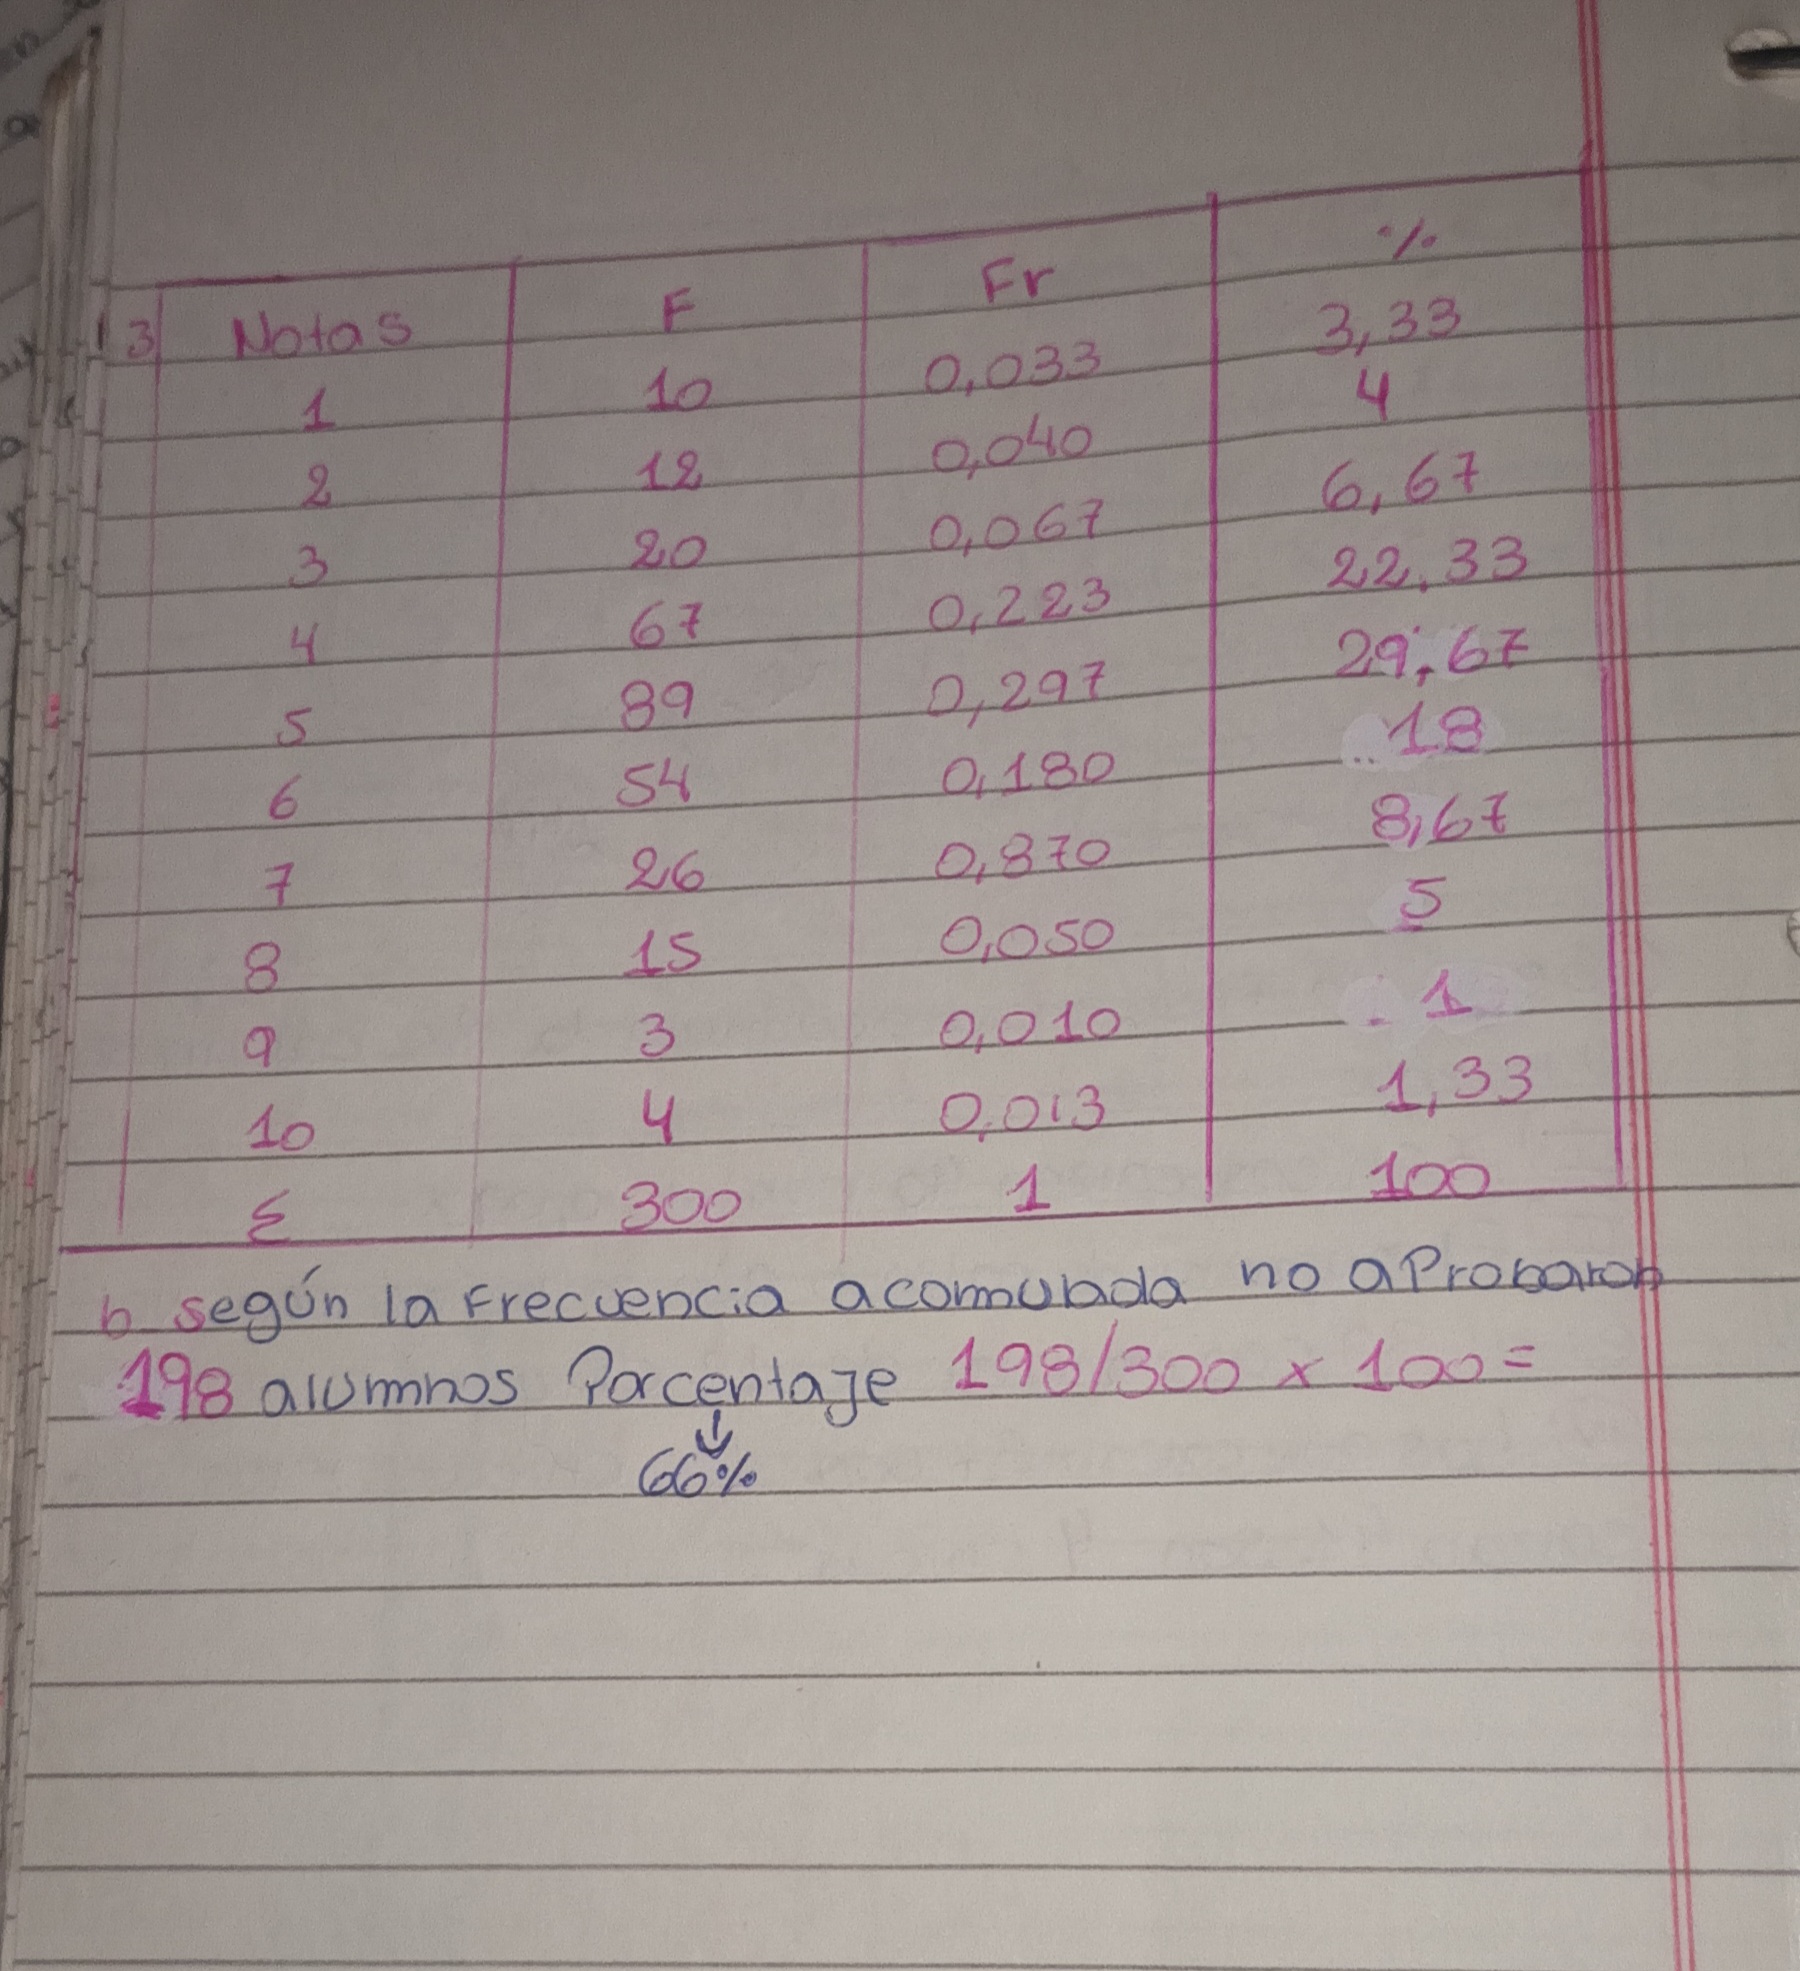 3 Notas F Fr %
1 10 0,033 3,33
2 12 0,040 4
3 20 0,067 6,67
4 67 0,223 22,33
5 89 0,297 29,67
6 54 0,180 18
7 26 0,870 8,67
8 15 0,050 5
9 3 0,010 1
10 4 0,013 1,33
Σ 300 1 100
b según la Frecuencia acomubada no aProbaron
198 alumnos Porcentaje 198/300 x 100=
↓
66%